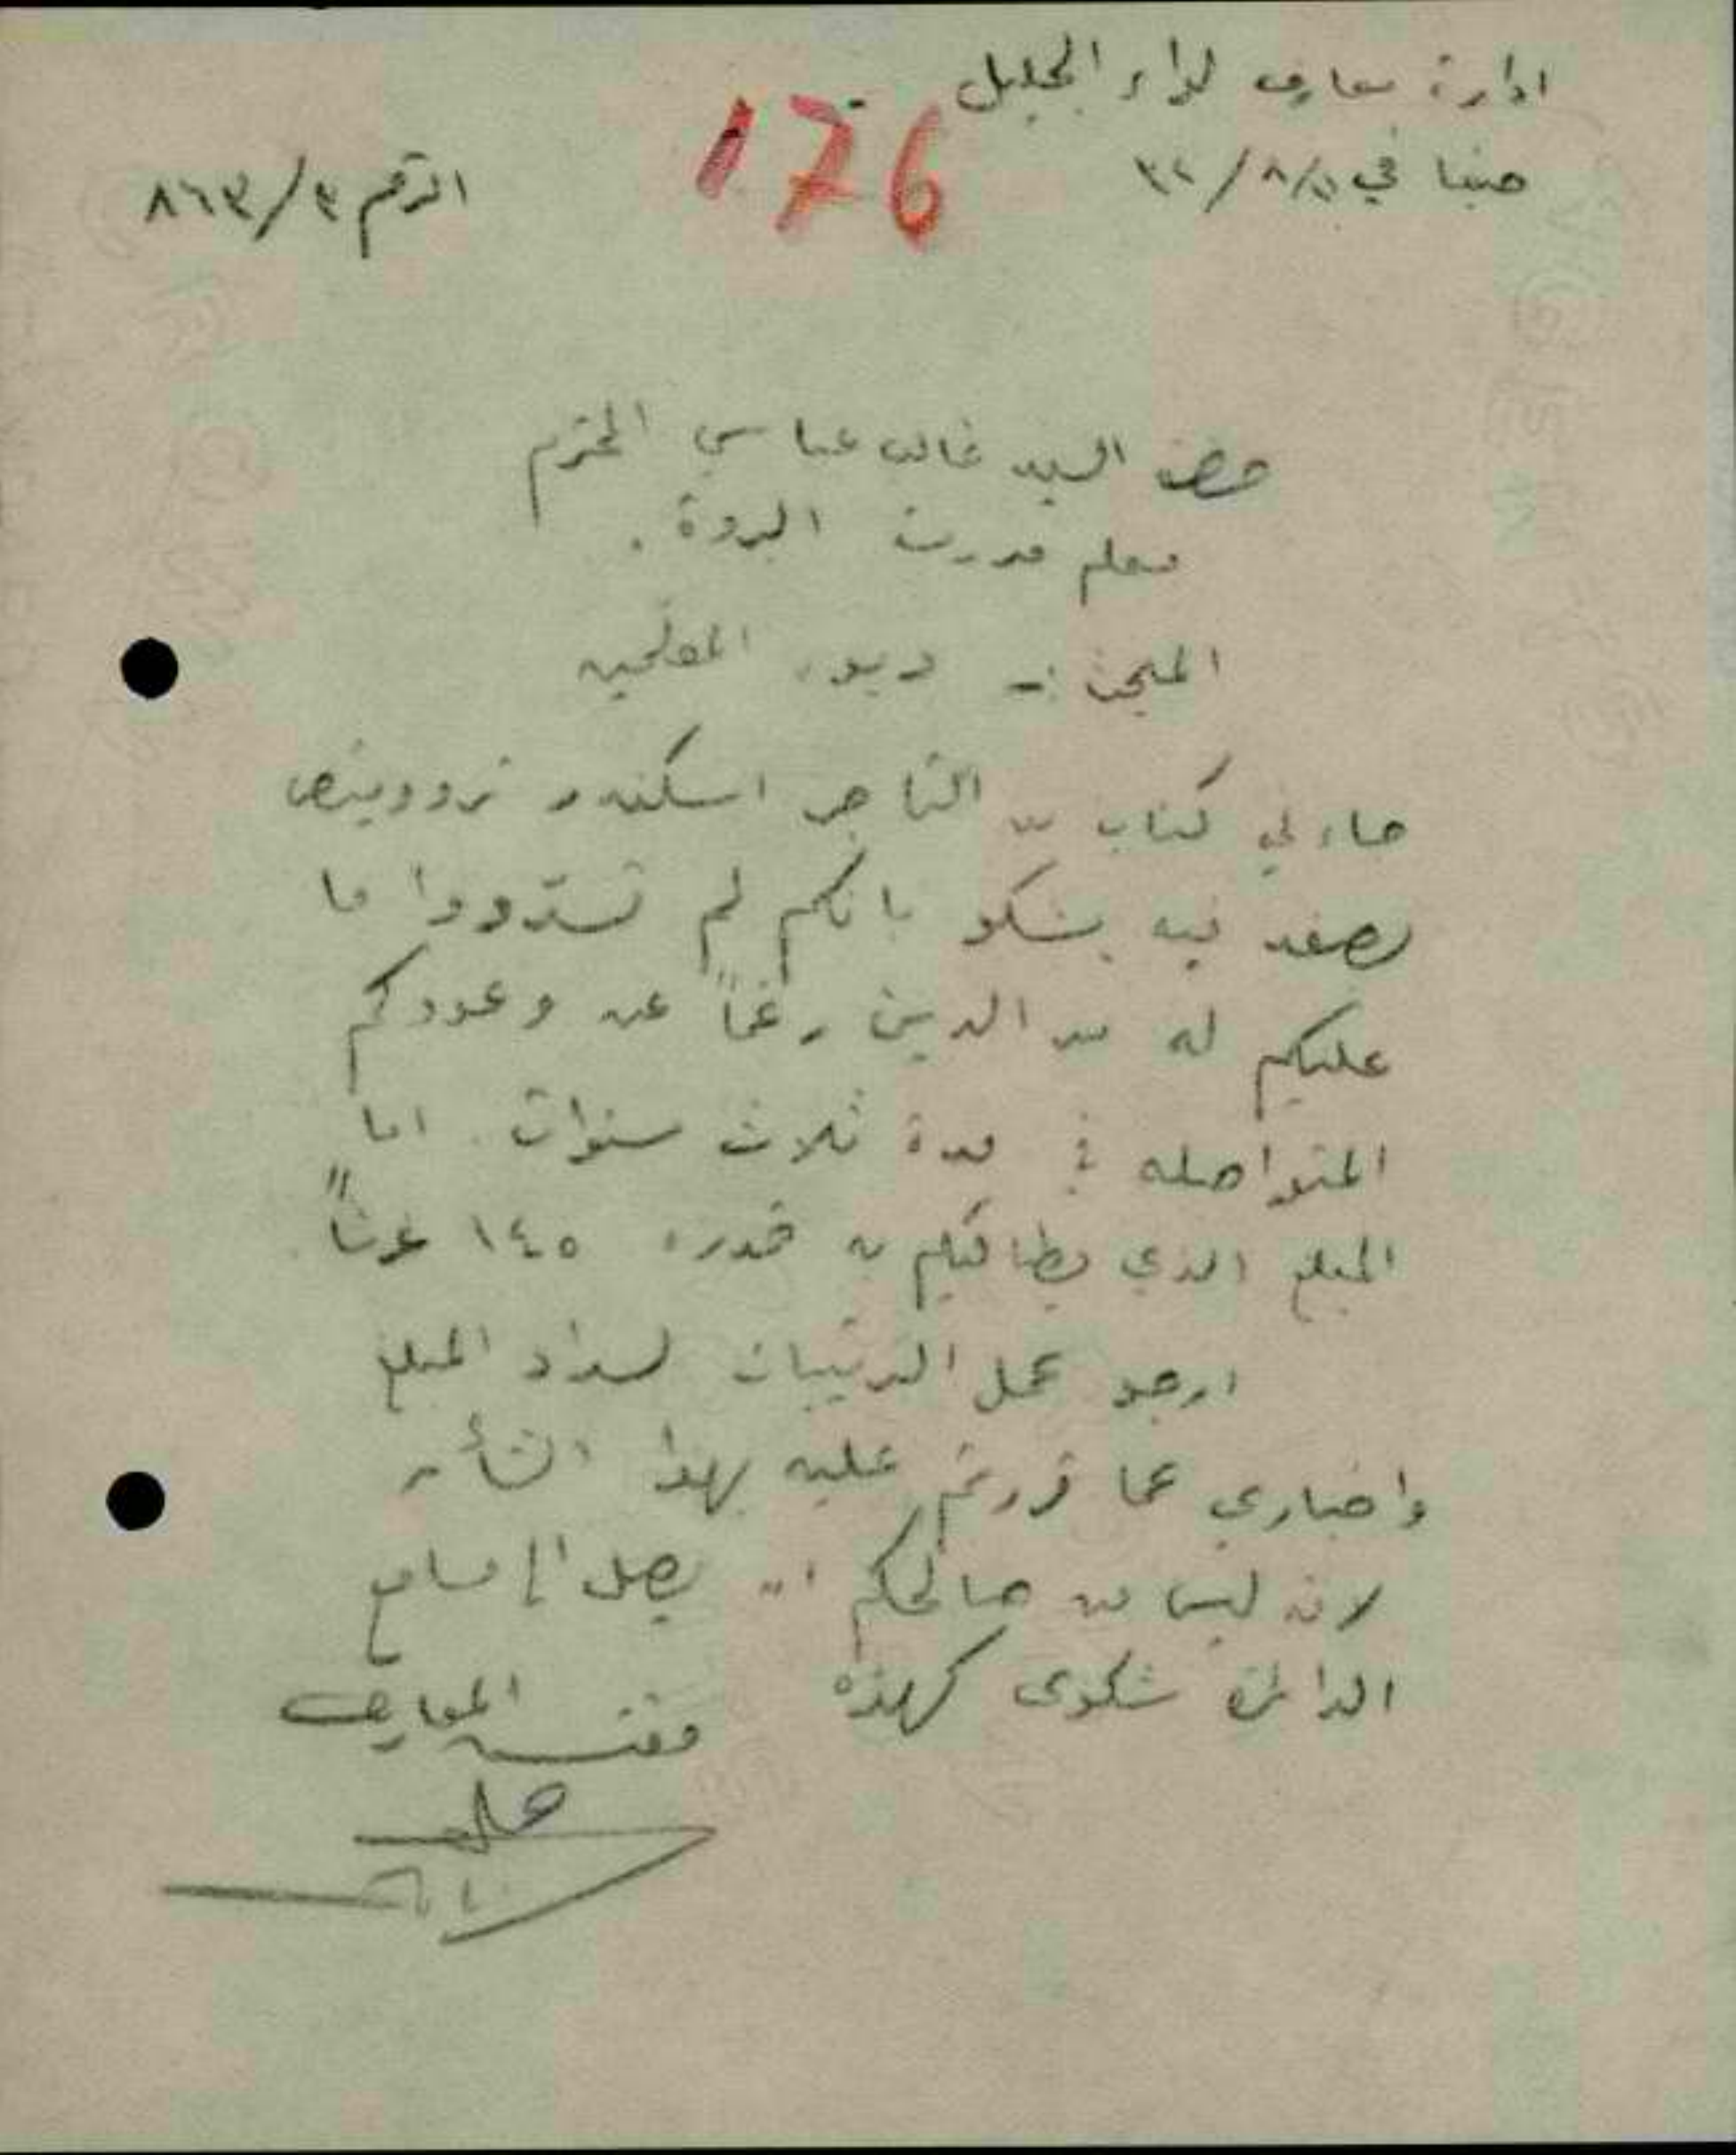 ادارة معارف لواء الجليل
176
حيفا في /٨/٣٢
الرقم ٨٦٣/٣
حضرة السيد غالب عباسي المحترم
معلم مدرسة البروة .
المبحث :- ديون المعلمين
جاء لي كتاب من التاجر اسكندر
فيه يشكو بانكم لم تسددوا ما
عليكم له من الدين رغماً عن وعودكم
المتواصله في مدة ثلاث سنوات . اما
المبلغ الذي يطالبكم به قدره ١٤٥ غرشاً
ارجو عمل الترتيبات لسداد المبلغ
واخباري عما قررتم عليه بهذا الشأن
لانه ليس من صالحكم ان يصل الى مسامع
الدائرة شكوى كهذه
مفتش المعارف